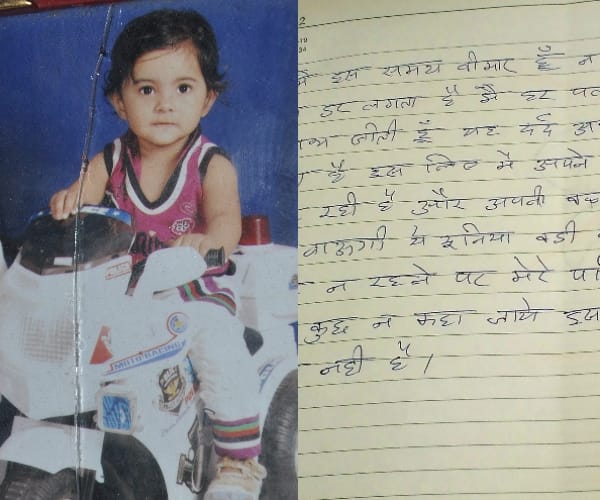 2
मैं इस समय बीमार हूँ न
डर लगता है मै हर पल
जीती हूँ यह दर्द
है इस लिए मै अपने
रही है और अपनी
जाऊगी ये दुनिया बडी
न रहने पर मेरे
कुछ न कहा जाये इस
नही है।
MOTO RACING